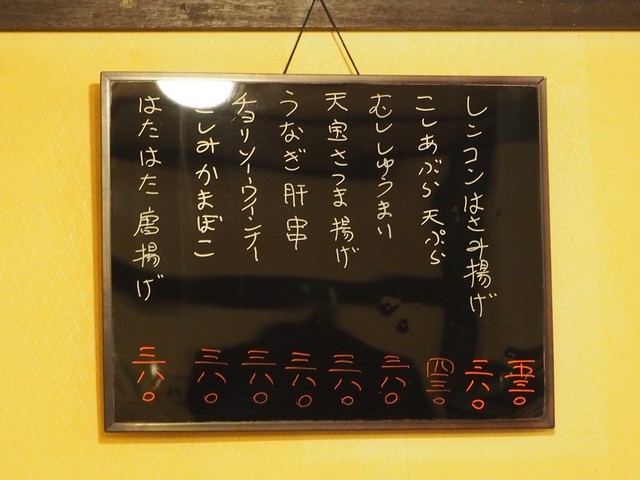 五三〇
レンコンはさみ揚げ 三八〇
こしあぶら天ぷら 四三〇
むししゅうまい 三八〇
天宝さつま揚げ 三八〇
うなぎ肝串 三八〇
チョリソーウインナー 三八〇
しみかまぼこ 三八〇
はたはた唐揚げ 三八〇